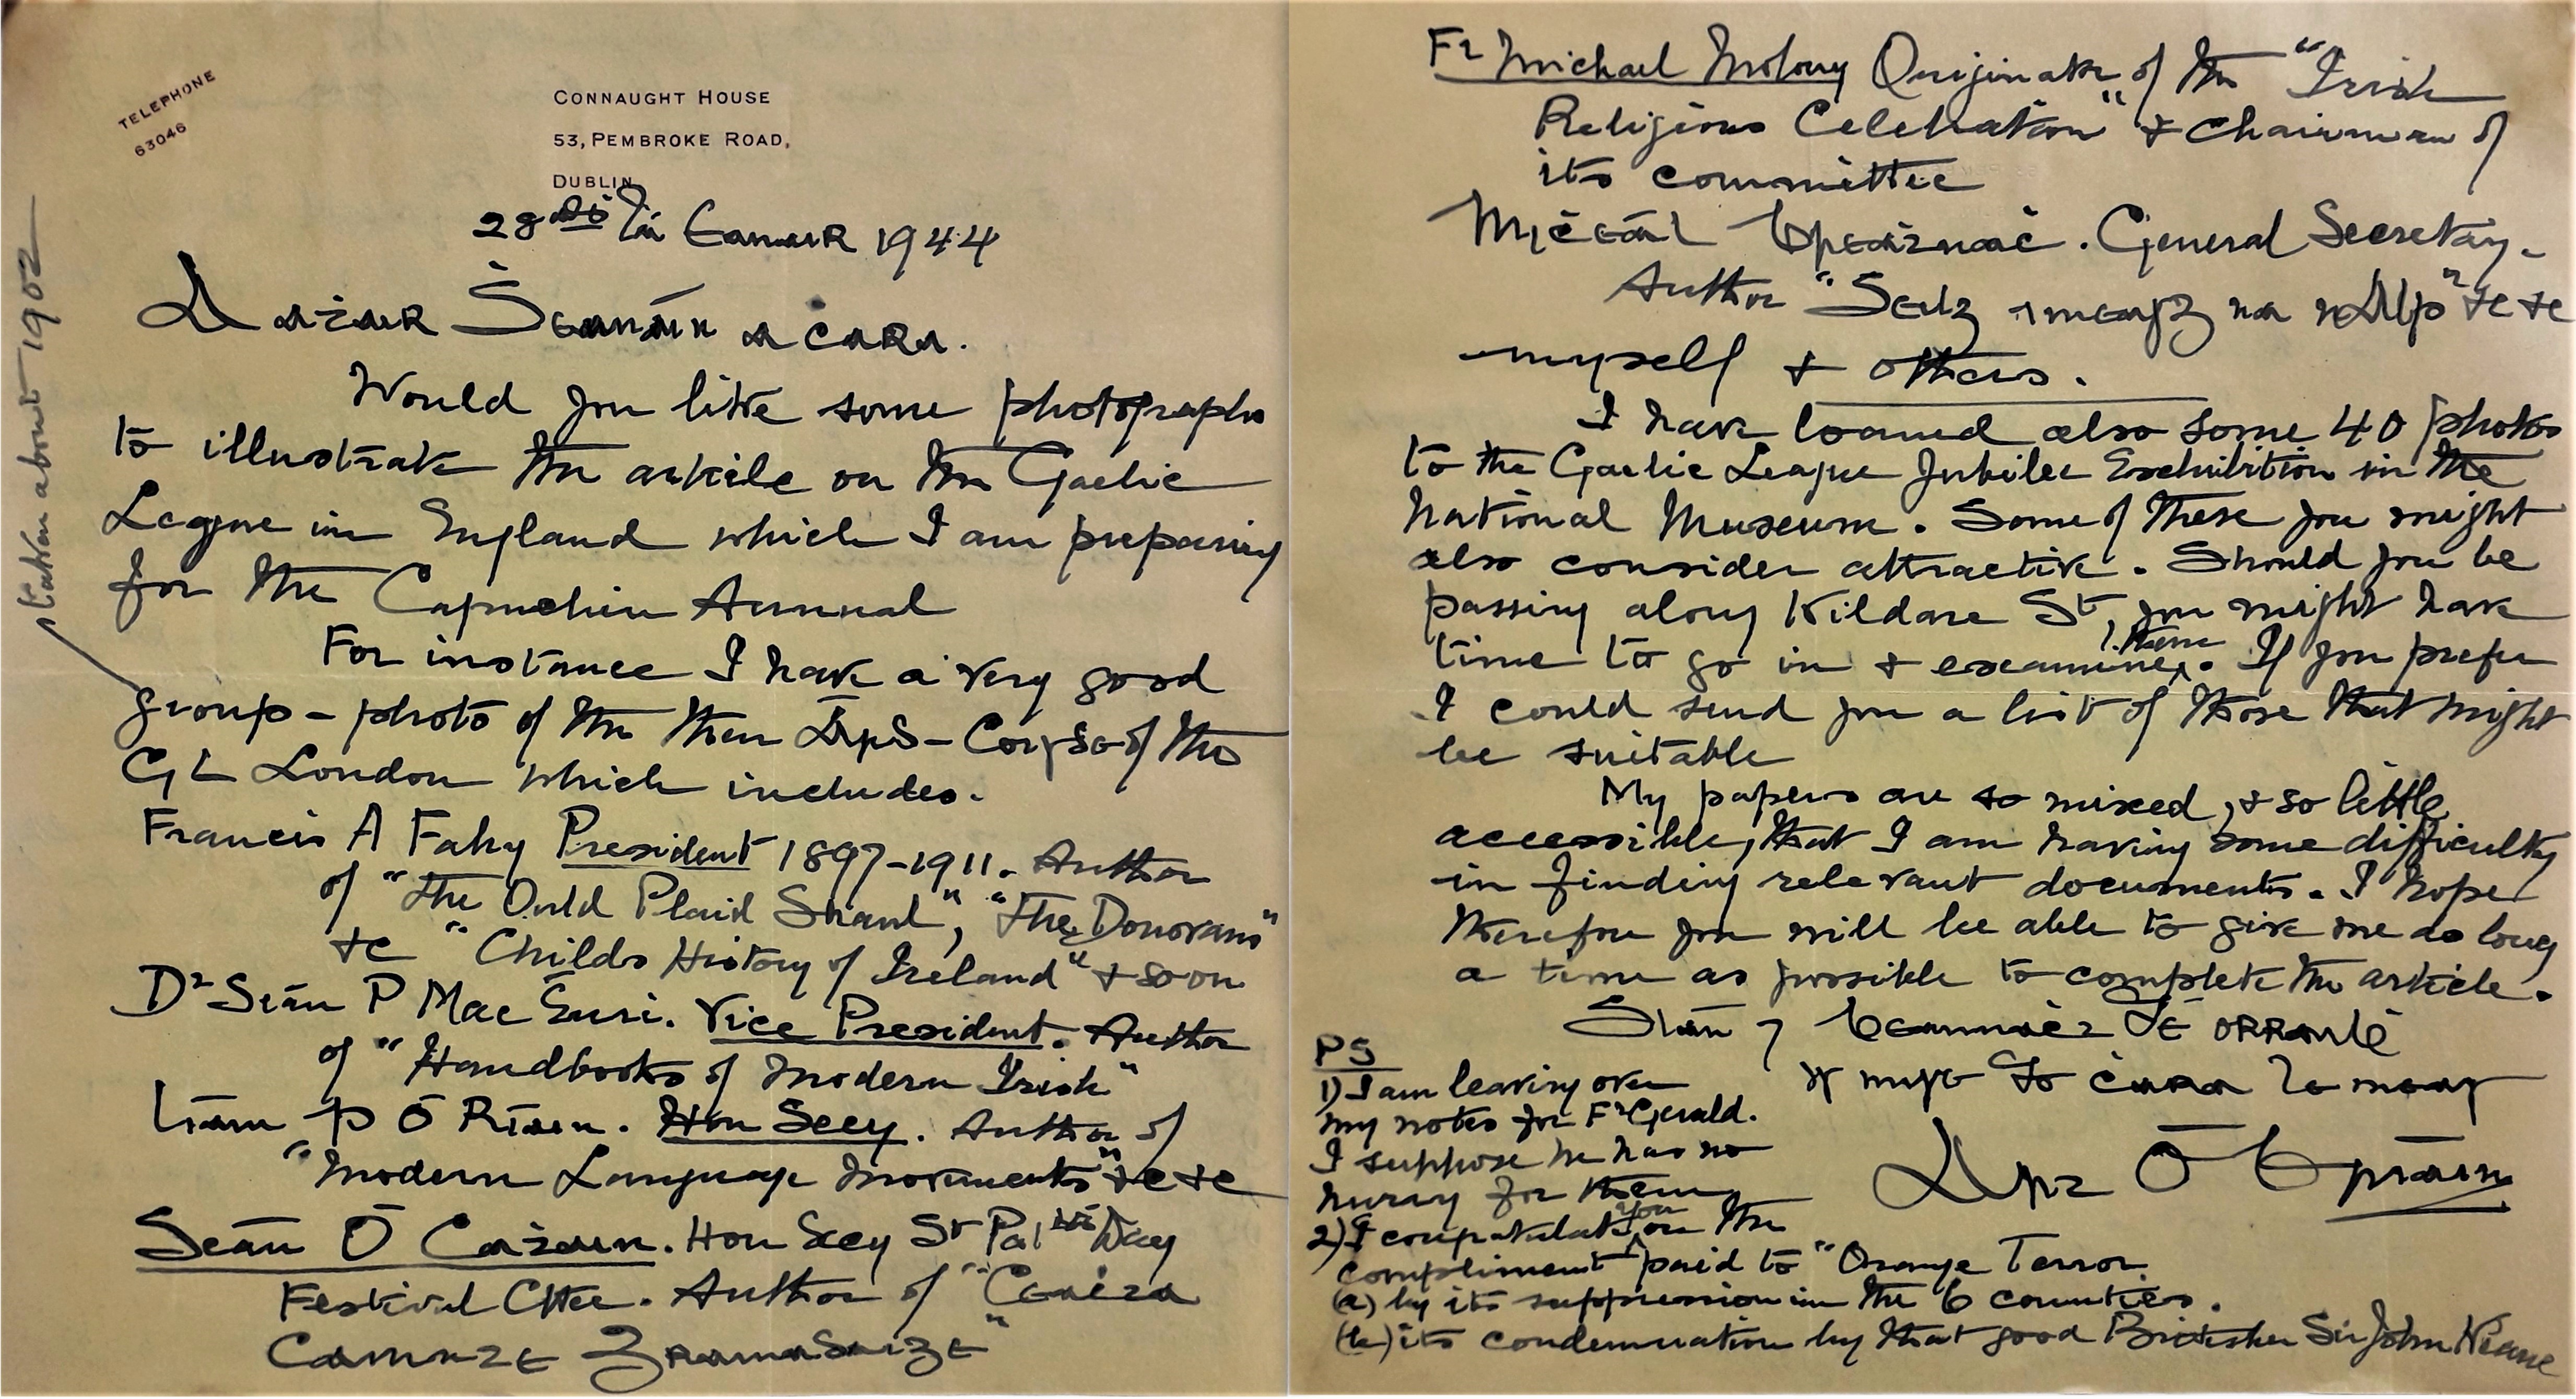 TELEPHONE
63046
CONNAUGHT HOUSE
53, PEMBROKE ROAD,
DUBLIN
28 Eanair 1944
A Aṫair Seanáin a cara.
Would you like some photographs
to illustrate the article on the Gaelic
League in England which I am preparing
for the Capuchin Annual
For instance I have a very good
group-photo of the then Árd-Coisde of the
GL London which includes.
taken about 1902
Francis A Fahy President 1897-1911. Author
of "The Ould Plaid Shawl", "The Donovans"
&c "Childs History of Ireland" & so on
Dr Seán P Mac Énrí. Vice President. Author
of "Handbooks of Modern Irish"
Liam P Ó Riain. Hon Secy. Author of
"Modern Language Movements" &c &c
Seán Ó Caṫáin. Hon Secy St Pat's Day
Festival Cttee. Author of "Ceaċta
Cainnte Gramadaiġe"
Fr Michael Molony Originator of the "Irish
Religious Celebration" & Chairman of
its committee
Miċeál Breaṫnaċ. General Secretary.
Author "Seilg i measg na nAlp" &c &c
myself & others.
I have loaned also some 40 photos
to the Gaelic League Jubilee Exhibition in the
National Museum. Some of these you might
also consider attractive. Should you be
passing along Kildare St, you might have
time to go in & examine them. If you prefer
I could send you a list of those that might
be suitable
My papers are so mixed, & so little
accessible, that I am having some difficulty
in finding relevant documents. I hope
therefore you will be able to give me as long
a time as possible to complete the article.
Slán ⁊ beannaċt Dé orraiḃ
is mise do ċara le meas
Art Ó Briain
PS
1) I am leaving over
my notes for Fr Gerald.
I suppose he has no
hurry for them
2) I congratulate you on the
compliment paid to "Orange Terror
(a) by its suppression in the 6 counties.
(b) its condemnation by that good Britisher Sir John Keane